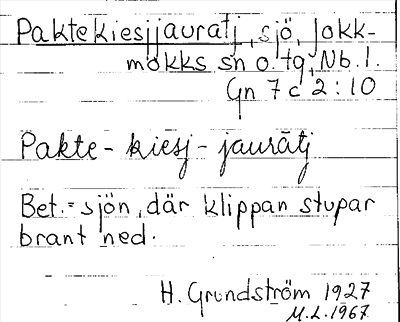 Paktekiesjjauratj, sjö, Jokk-
mokks sn o. tg, Nb. l.
Gn 7 c 2:10
Pakte-kiesj-jaurātj
Bet. = sjön, där klippan stupar
brant ned.
H. Grundström 1927
M.L. 1967